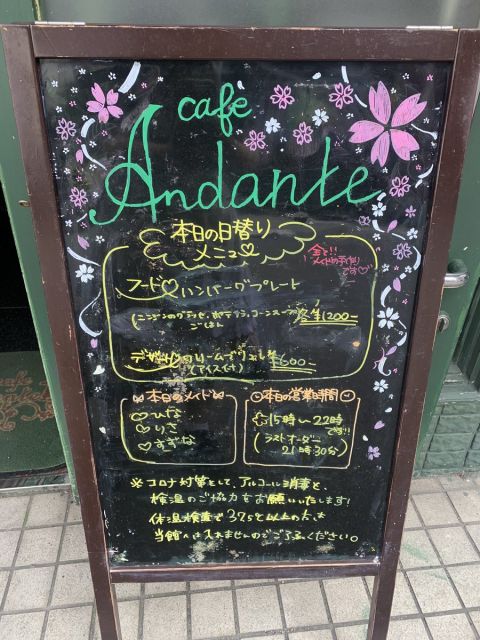 cafe
Andante
本日の日替り
メニュー♡
全て!!
メイドの手作り
です♡
フード♡ハンバーグプレート
(ニンジンのグラッセ、ポテサラ、コーンスープ
ごはん
¥1200-
デザート♡クリームブリュレ
(アイス付)
¥600-
本日のメイド
♡ひな
♡りさ
♡すずな
本日の営業時間
15時〜22時
です!!
(ラストオーダー
21時30分)
※コロナ対策として、アルコール消毒と、
検温のご協力をお願いいたします!
体温検査で37.5℃以上の方は
当館へは入れませんのでご了承ください。